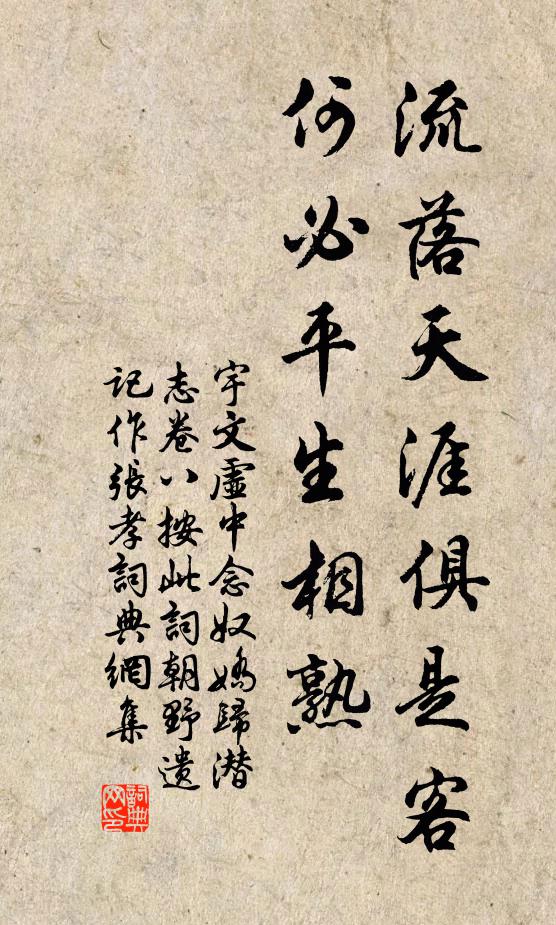 流落天涯俱是客
何必平生相熟
宇文虛中念奴嬌歸潜
志卷八按此詞朝野遗
记作張孝詞典網集
詞典网印